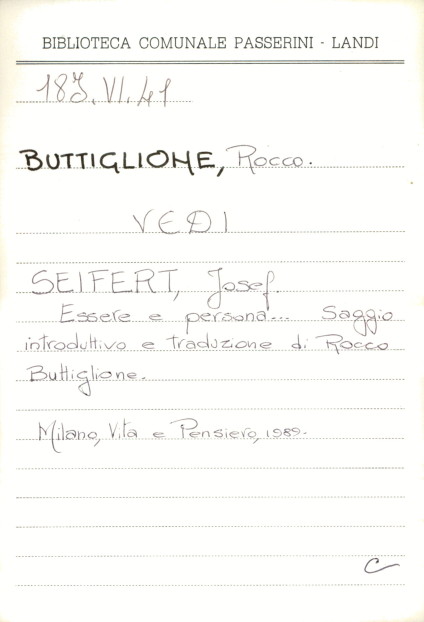 BIBLIOTECA COMUNALE PASSERINI - LANDI
18J.VI.41
BUTTIGLIONE, Rocco.
VEDI
SEIFERT, Josef.
Essere e persona... Saggio
introduttivo e traduzione di Rocco
Buttiglione.
Milano, Vita e Pensiero, 1989.
C